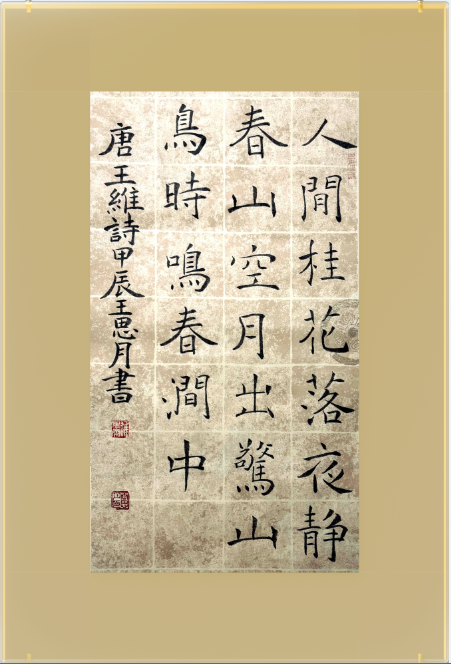 人閒桂花落夜静
春山空月出驚山
鳥時鳴春澗中
唐王維詩甲辰王思月書